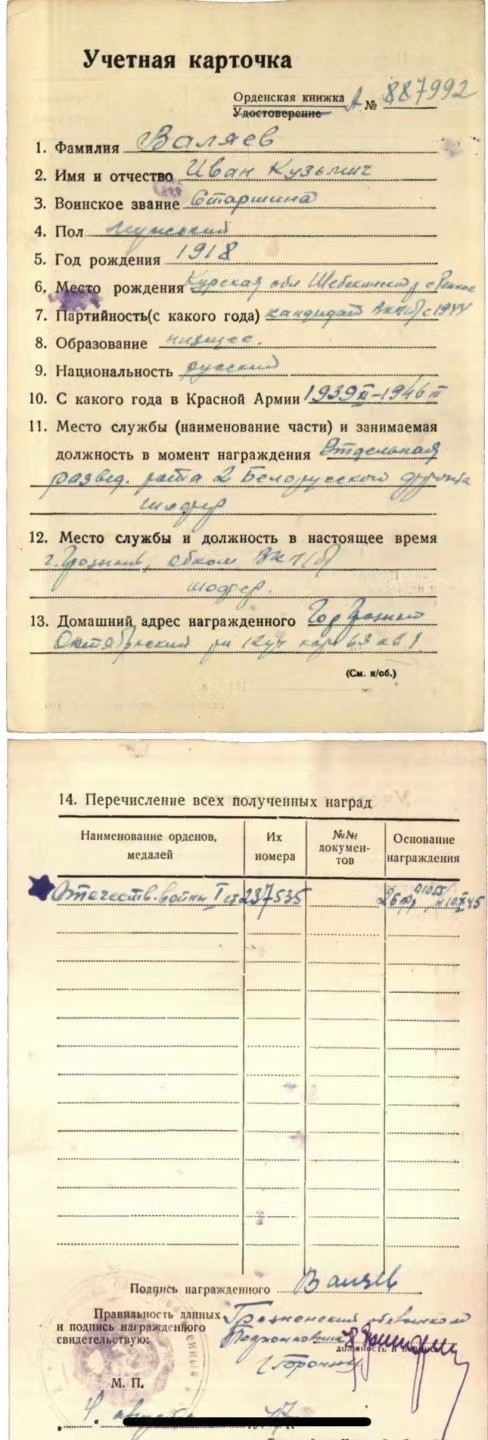 Учетная карточка
Орденская книжка
Удостоверение А № 887992
1. Фамилия Валяев
2. Имя и отчество Иван Кузьмич
3. Воинское звание Старшина
4. Пол мужской
5. Год рождения 1918
6. Место рождения Курская обл Шебекинск р с
7. Партийность(с какого года) кандидат вкп(б) с 1944
8. Образование низшее.
9. Национальность русский
10. С какого года в Красной Армии 1939 – 1946
11. Место службы (наименование части) и занимаемая
должность в момент награждения Отдельная
развед. рота 2 Белорусского фронта
шофер
12. Место службы и должность в настоящее время
г. Грозный, обком ВКП(б)
шофер.
13. Домашний адрес награжденного Гор Грозный
Октябрьский 63 кв 1
(См. н/об.)
14. Перечисление всех полученных наград
Наименование орденов, медалей
Их номера
№№ документов
Основание награждения
Отечеств. войны I ст 237535 45
Подпись награжденного Валяев
Правильность данных Грозненский облвоенком
и подпись награжденного Подполковник
свидетельствую: должность и
М. П.
4 августа 47